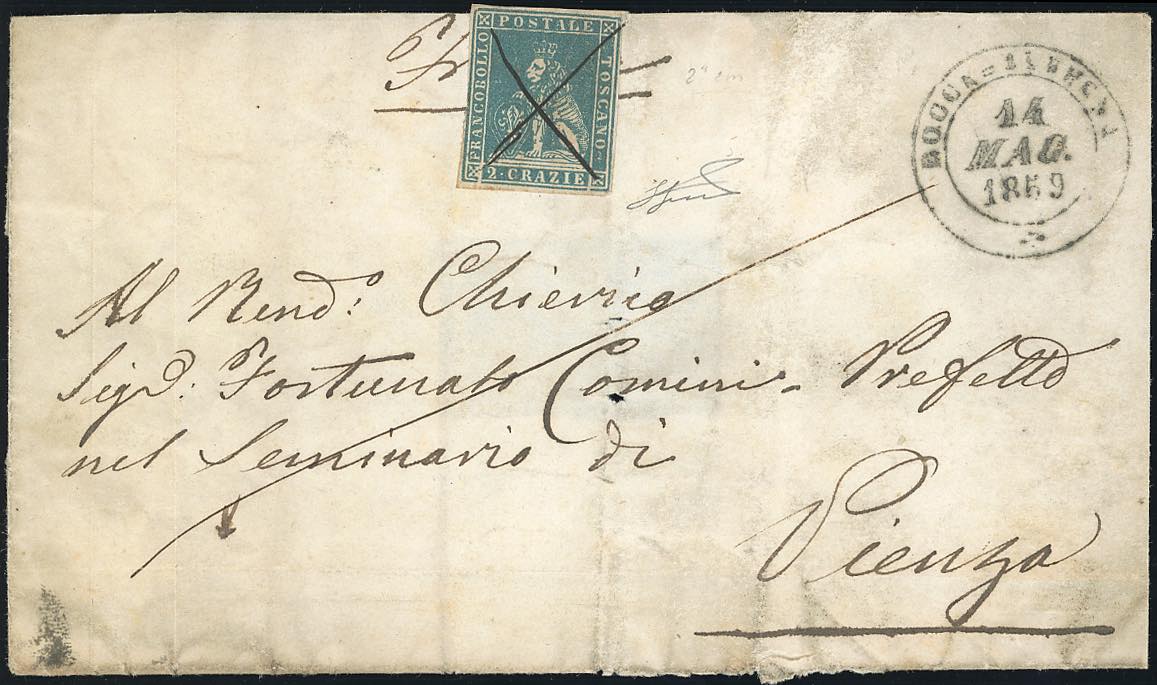 Fr
FRANCOBOLLO POSTALE TOSCANO
2 · CRAZIE
2ª em
14
MAG.
1859
Al Rend.: Chierico
Sigr.: Fortunato Comini - Prefetto
nel Seminario di
Pienza